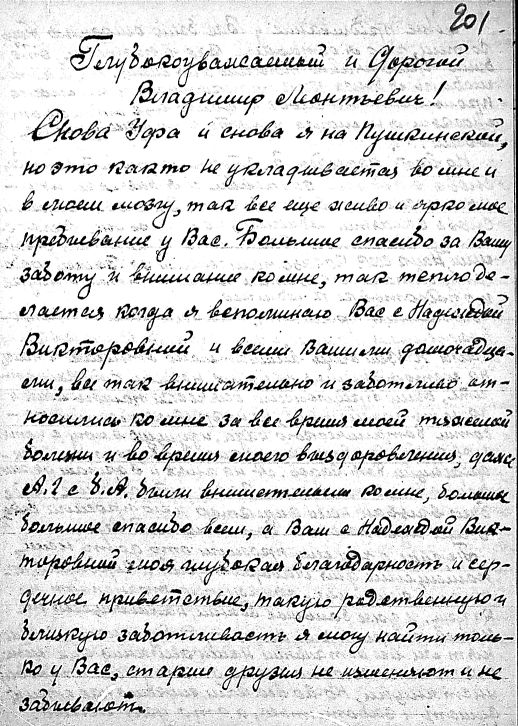 201.
Глубокоуважаемый и Дорогой
Владимир Леонтьевич!
Снова Уфа и снова я на Пушкинской,
но это как то не укладывается во мне и
в моем мозгу, так все еще живо и ярко мое
пребывание у Вас. Большое спасибо за Вашу
заботу и внимание ко мне, так тепло де-
лается когда я вспоминаю Вас с Надеждой
Викторовной и всеми Вашими домочадца-
ми, все так внимательно и заботливо от-
носились ко мне за все время моей тяжелой
болезни и во время моего выздоровления, даже
А.? с В.А. были внимательны ко мне, большое
большое спасибо всем, а Вам с Надеждой Вик-
торовной моя глубокая благодарность и сер-
дечное приветствие, такую родственную и
близкую заботливость я могу найти толь-
ко у Вас, старые друзья не изменяют и не
забывают.